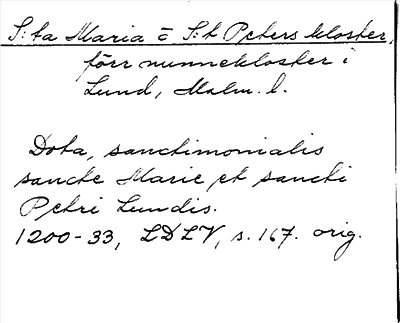 S:ta Maria o S:t Peters kloster,
förr nunnekloster i
Lund, Malm. l.
Dota, sanctimonialis
sancte Marie et sancti
Petri Lundis.
1200-33, LDLV, s. 167. orig.